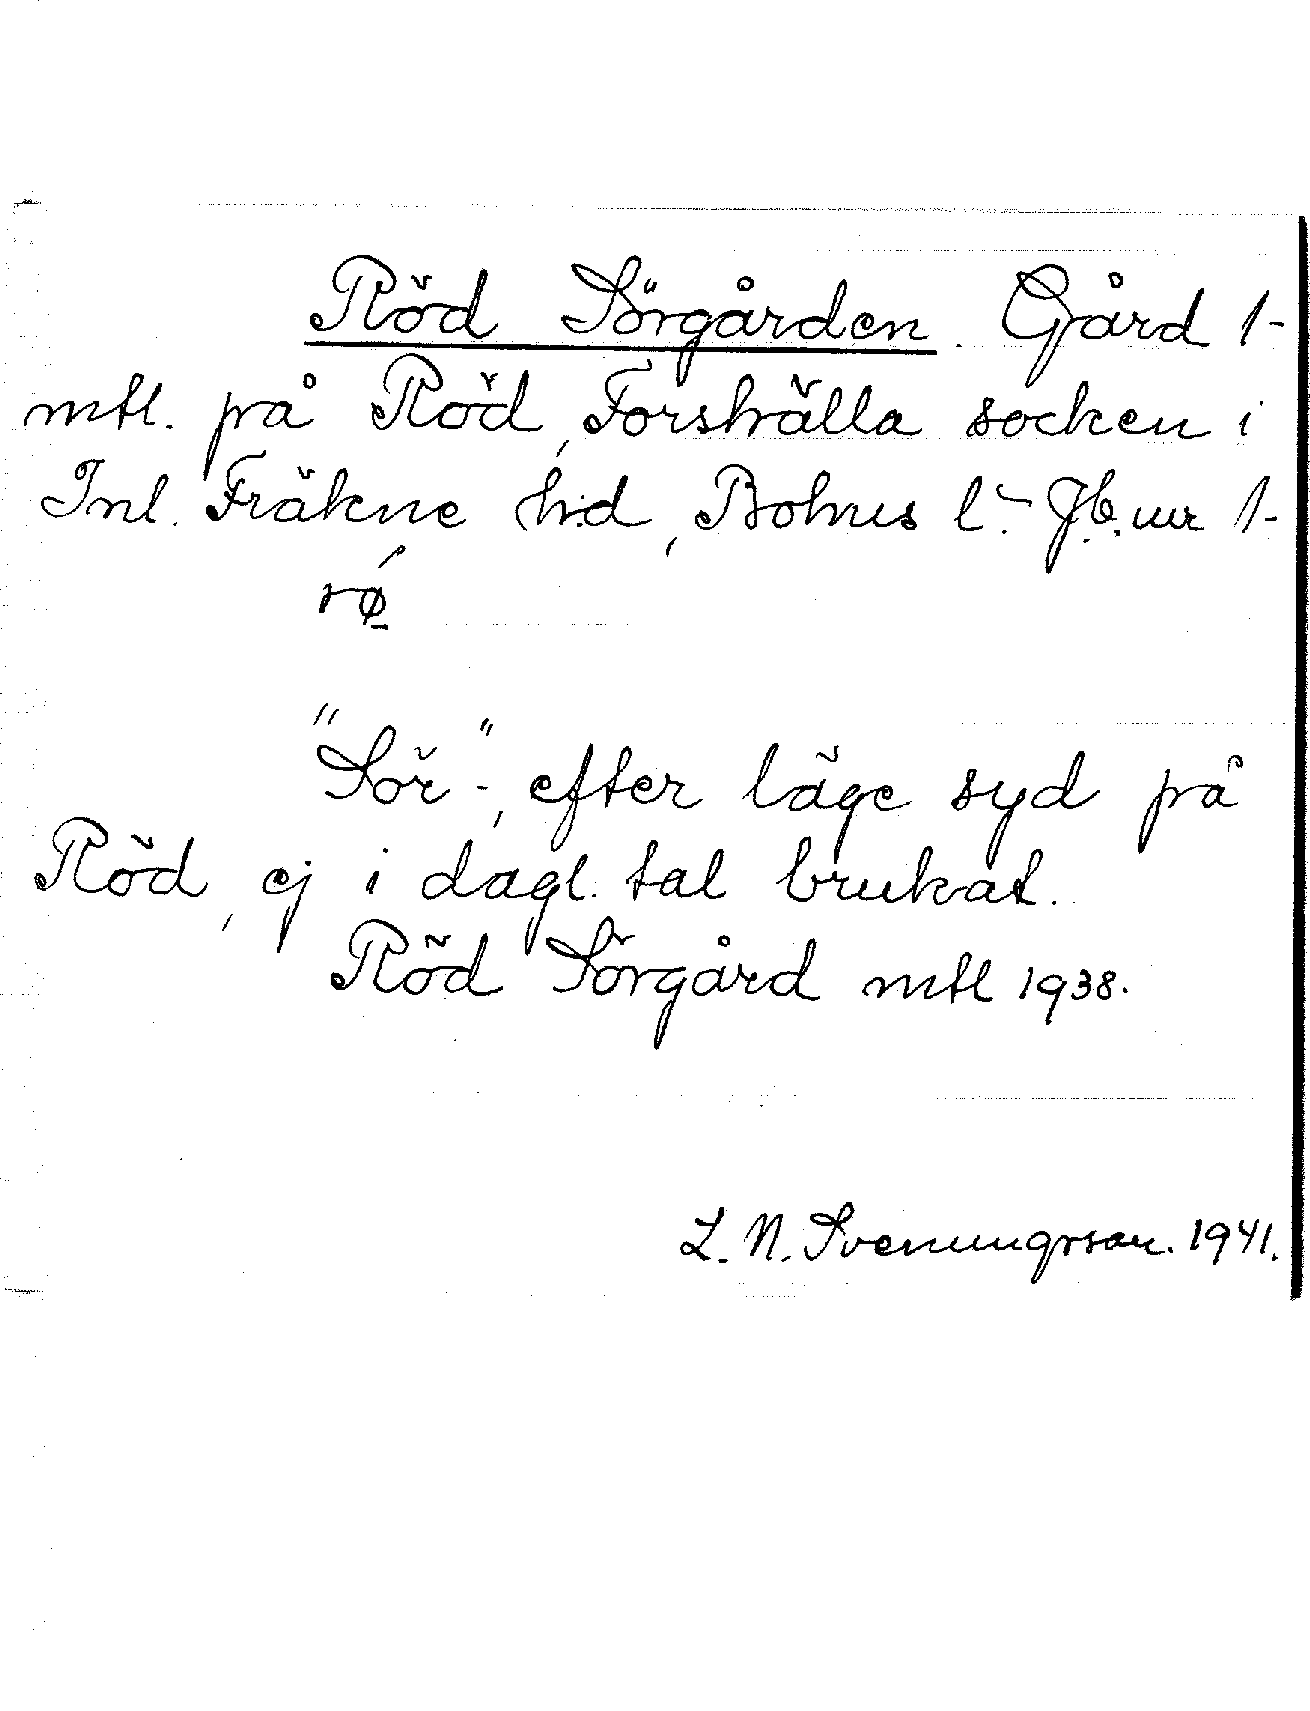 Röd Sörgården. Gård 1-
mtl. på Röd, Forshälla socken i
Inl. Fräkne hd, Bohus l.- Jb. nr 1-
rǿ
"Sör-", efter läge syd på
Röd, ej i dagl. tal brukat.
Röd Sörgård mtl 1938.
L. N. Svenungsson. 1941.